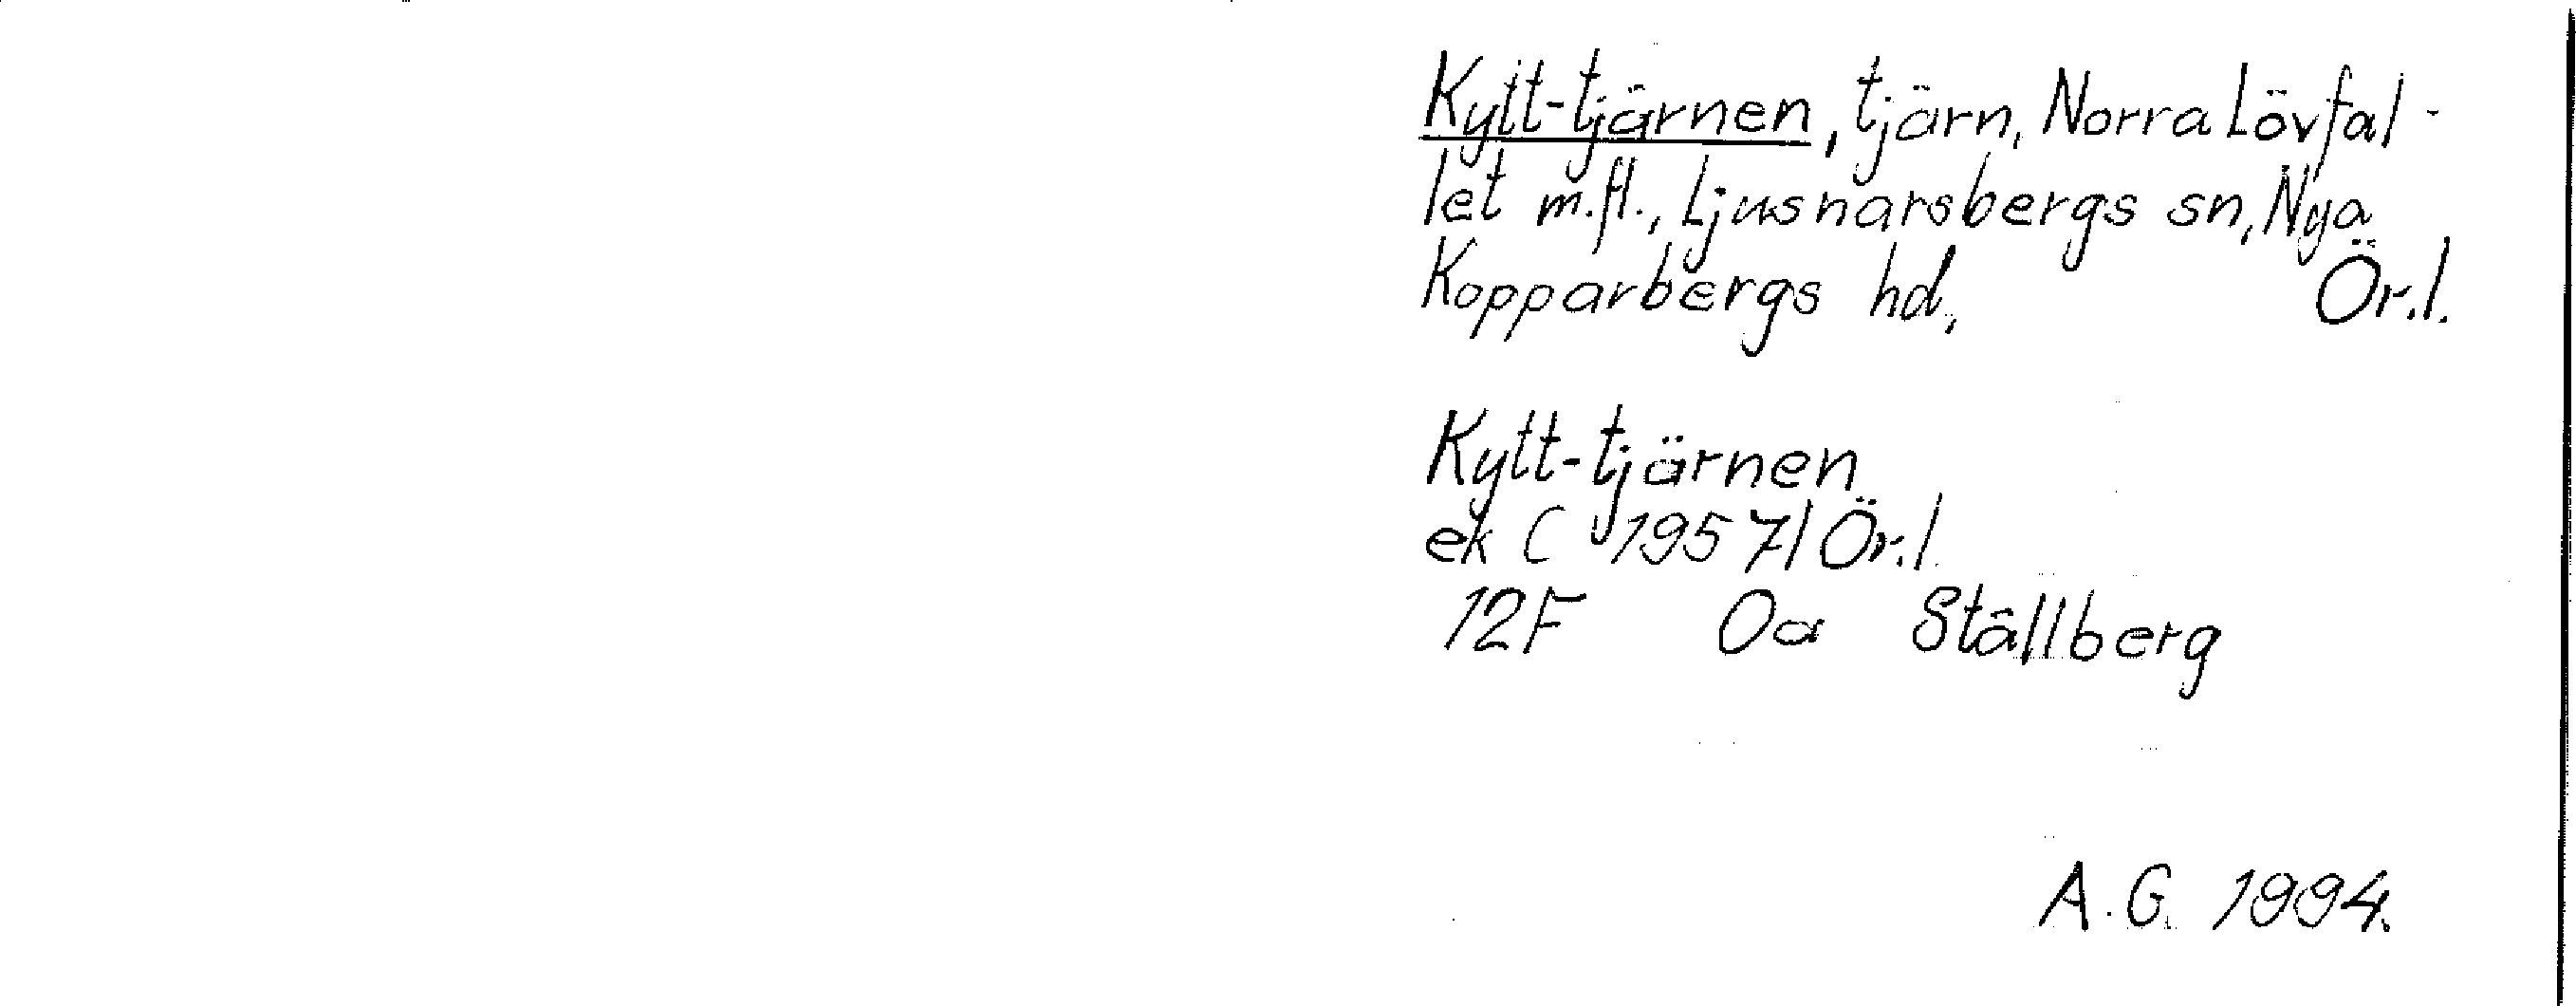 Kytt-tjärnen, tjärn, Norra Lövfal-
let m.fl., Ljusnarsbergs sn, Nya
Kopparbergs hd, Ör.l.
Kytt-tjärnen
ek C 1957/Ör.l.
12F 0a Ställberg
A.G. 1994.